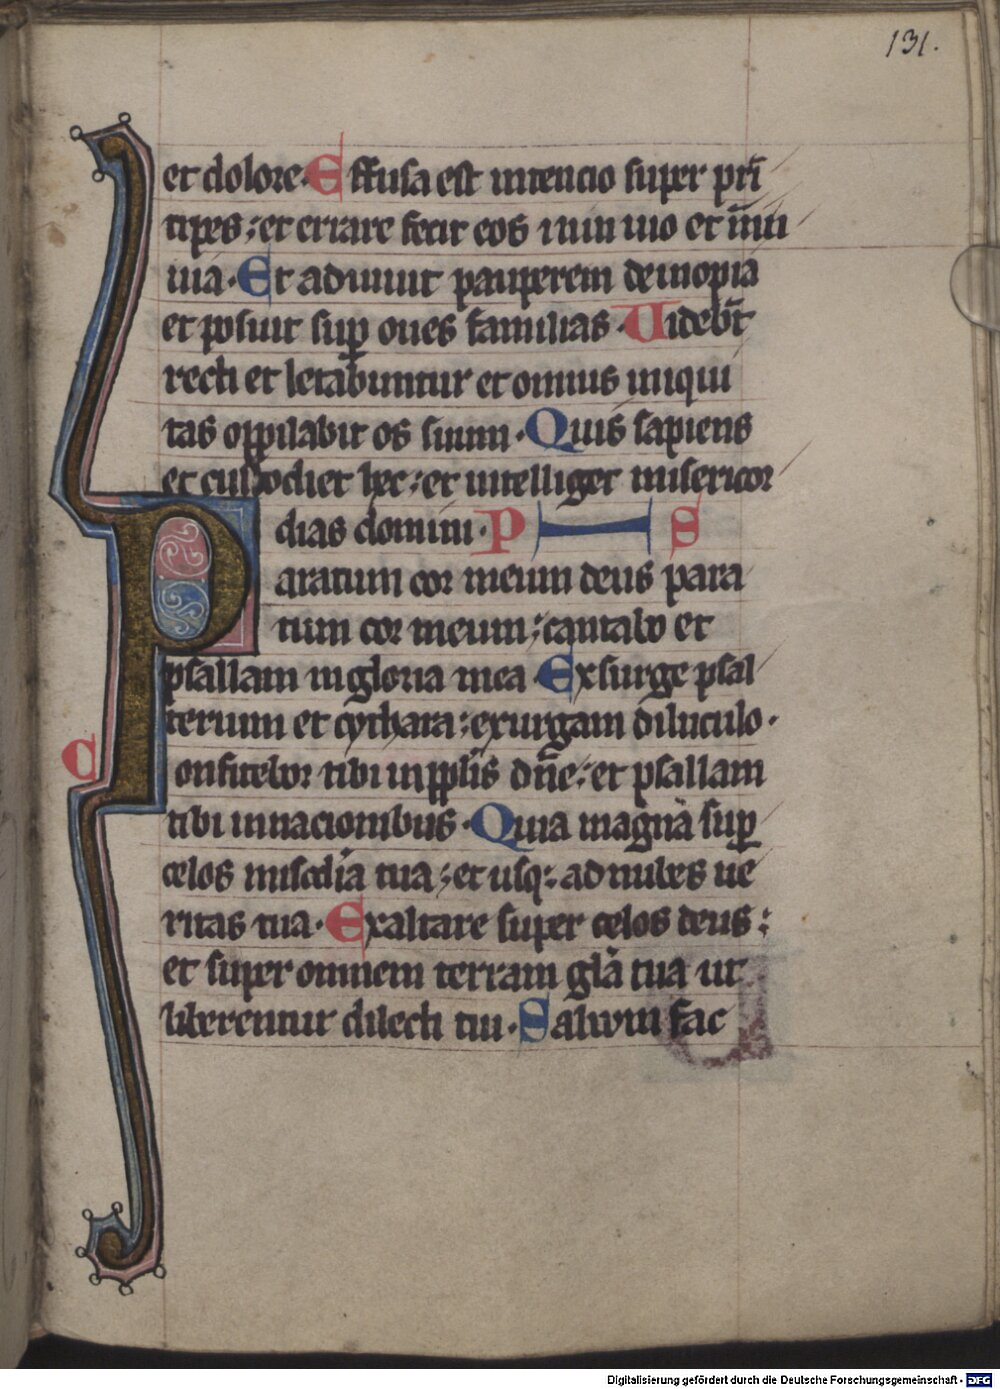 131.
et dolore. Effusa est intencio super prī
cipes; et errare fecit eos in inuio et nō in
uia. Et adiuuit pauperem de inopia
et posuit sup oues familias. Videbt̄
recti et letabuntur et omnis iniqui
tas oppilabit os suum. Quis sapiens
et custodiet hec; et intelliget misericor
dias domini. P S
aratum cor meum deus para
tum cor meum; cantabo et
psallam in gloria mea. Exsurge psal
terium et cythara; exurgam diluculo.
Confitebor tibi in pplis dn̄e; et psallam
tibi in nacionibus. Quia magna sup
celos misc̄dia tua; et usq; ad nubes ue
ritas tua. Exaltare super celos deus;
et super omnem terram glā tua ut
liberentur dilecti tui. Saluum fac
Digitalisierung gefördert durch die Deutsche Forschungsgemeinschaft - DFG